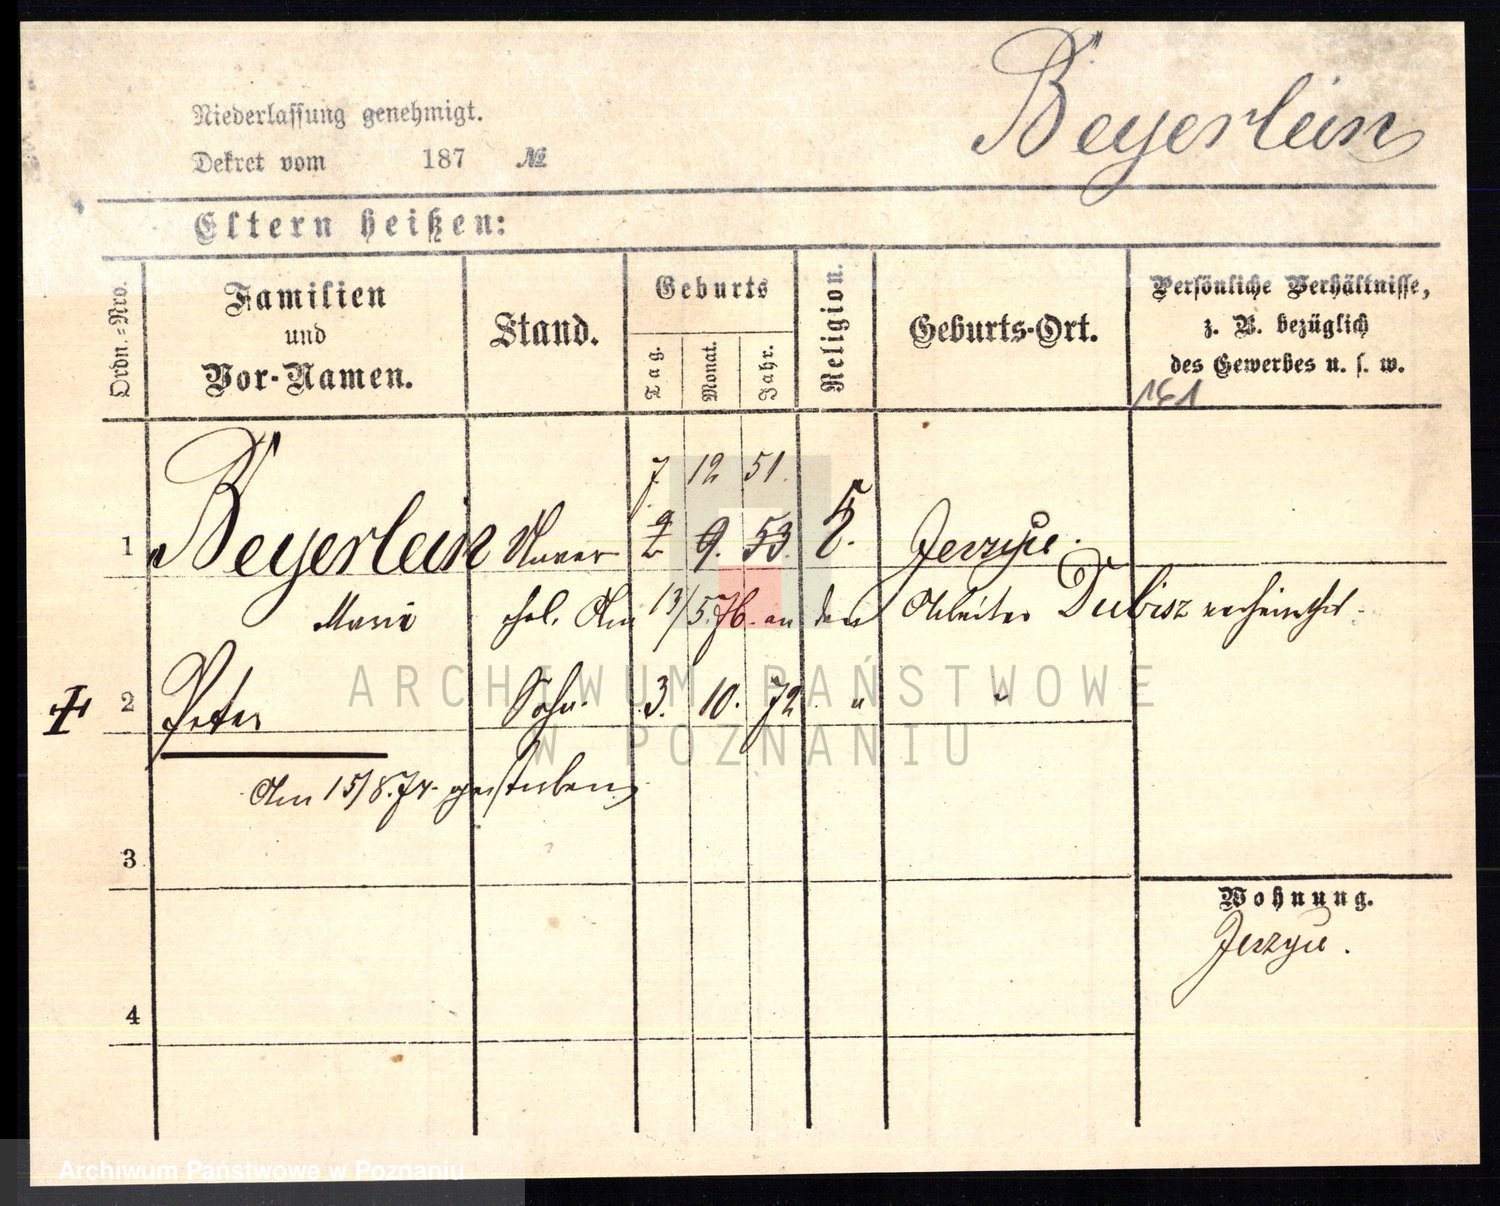 Beyerlein
Niederlassung genehmigt.
Dekret vom 187 №
Eltern heißen:
Ordn.-Nro.
Familien
und
Vor-Namen.
Stand.
Geburts
Tag.
Monat.
Jahr.
Religion.
Geburts-Ort.
Persönliche Verhältnisse,
z. B. bezüglich
des Gewerbes u. s. w.
7 12 51.
1 Beyerlein 9. 53. Jerzyce.
Marie Am 13/5.76. an den Arbeiter Dubisz verheirathet.
2 Peter Sohn. 3. 10. 72. " "
Am 15/8.74. gestorben
3
Wohnung.
Jerzyce.
4
ARCHIWUM PAŃSTWOWE
W POZNANIU
Archiwum Państwowe w Poznaniu